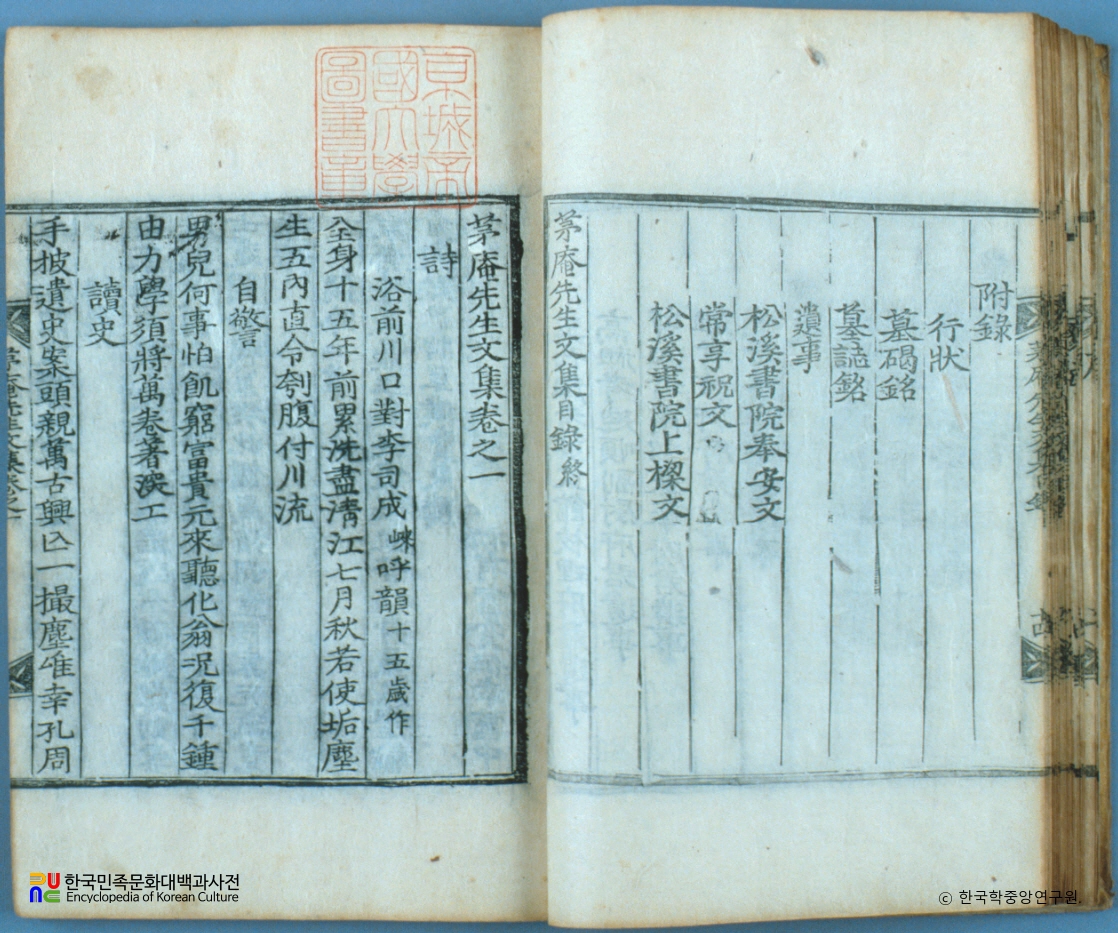 附錄
行狀
墓碣銘
墓誌銘
遺事
松溪書院奉安文
常享祝文
松溪書院上樑文
茅庵先生文集目錄終
京城帝
國大學
圖書章
茅庵先生文集卷之一
詩
浴前川口對李司成崍呼韻十五歲作
全身十五年前累洗盡淸江七月秋若使垢塵
生五內直令刳腹付川流
自警
男兒何事怕飢窮富貴元來聽化翁況復千鍾
由力學須將萬卷著深工
讀史
手披遺史案頭親萬古興亾一撮塵唯幸孔周
한국민족문화대백과사전
Encyclopedia of Korean Culture
© 한국학중앙연구원